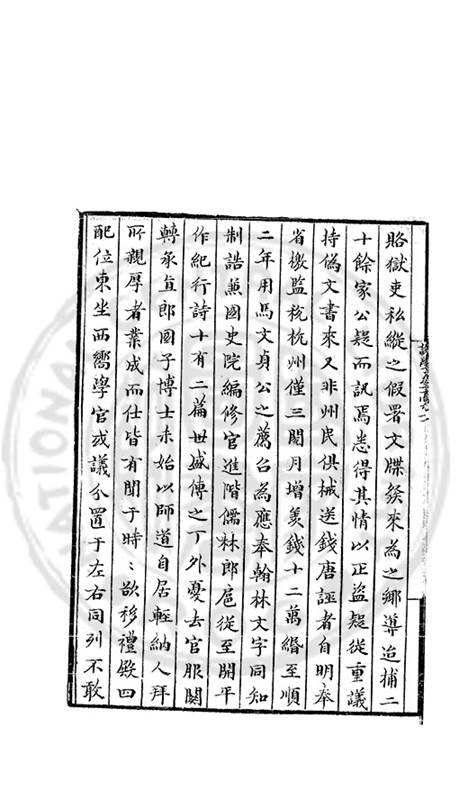 賂獄吏私縱之假署文牒發來為之鄉導追捕二
十餘家公疑而訊焉悉得其情以正盜疑從重議
持偽文書來又非州民俱械送錢唐誣者自明奉
省檄監稅杭州僅三閱月增羨錢十二萬緡至順
二年用馬文貞公之薦召為應奉翰林文字同知
制誥兼國史院編修官進階儒林郎扈從至開平
作紀行詩十有二篇世盛傳之丁外憂去官服闋
轉承直郎國子博士未始以師道自居輕納人拜
所親厚者業成而仕皆有聞于時欲移禮殿四
配位東坐西嚮學官或議分置于左右同列不敢